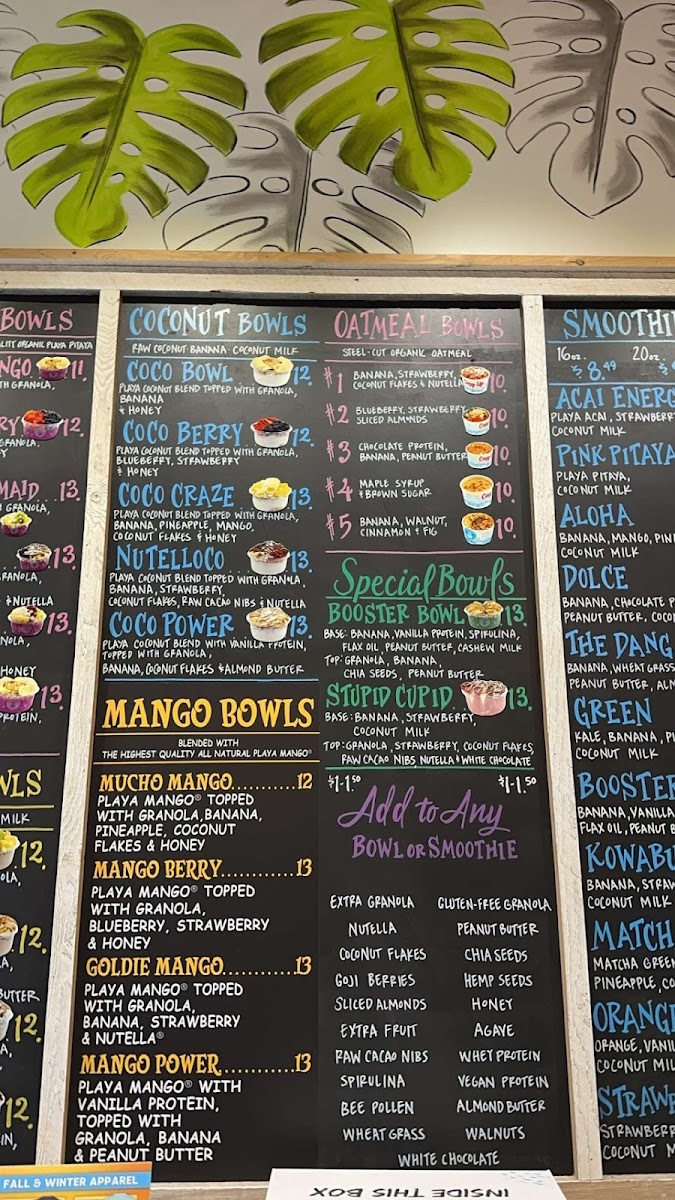 BOWLS
LITY ORGANIC PLAYA PITAYA
NGO 11.
TH GRANOLA,
RY 12.
GRANOLA,
Y
MAID 13.
GRANOLA,
13.
RANOLA,
& NUTELLA
13.
NOLA,
HONEY
13.
PROTEIN,
WLS
MILK
12.
OLA,
12.
A,
BUTTER
12.
A,
A,
12.
IN,
COCONUT BOWLS
RAW COCONUT · BANANA · COCONUT MILK
COCO BOWL 12.
PLAYA COCONUT BLEND TOPPED WITH GRANOLA,
BANANA
& HONEY
COCO BERRY 12.
PLAYA COCONUT BLEND TOPPED WITH GRANOLA,
BLUEBERRY, STRAWBERRY
& HONEY
COCO CRAZE 13.
PLAYA COCONUT BLEND TOPPED WITH GRANOLA,
BANANA, PINEAPPLE, MANGO,
COCONUT FLAKES & HONEY
NUTELLOCO 13.
PLAYA COCONUT BLEND TOPPED WITH GRANOLA,
BANANA, STRAWBERRY,
COCONUT FLAKES, RAW CACAO NIBS & NUTELLA
COCO POWER 13.
PLAYA COCONUT BLEND WITH VANILLA PROTEIN,
TOPPED WITH GRANOLA,
BANANA, COCONUT FLAKES & ALMOND BUTTER
MANGO BOWLS
BLENDED WITH
THE HIGHEST QUALITY ALL NATURAL PLAYA MANGO®
MUCHO MANGO..........12
PLAYA MANGO® TOPPED
WITH GRANOLA, BANANA,
PINEAPPLE, COCONUT
FLAKES & HONEY
MANGO BERRY............13
PLAYA MANGO® TOPPED
WITH GRANOLA,
BLUEBERRY, STRAWBERRY
& HONEY
GOLDIE MANGO...........13
PLAYA MANGO® TOPPED
WITH GRANOLA,
BANANA, STRAWBERRY
& NUTELLA®
MANGO POWER............13
PLAYA MANGO® WITH
VANILLA PROTEIN,
TOPPED WITH
GRANOLA, BANANA
& PEANUT BUTTER
OATMEAL BOWLS
STEEL-CUT ORGANIC OATMEAL
#1 BANANA, STRAWBERRY, 10.
COCONUT FLAKES & NUTELLA
#2 BLUEBERRY, STRAWBERRY 10.
SLICED ALMONDS
#3 CHOCOLATE PROTEIN, 10.
BANANA, PEANUT BUTTER
#4 MAPLE SYRUP 10.
& BROWN SUGAR
#5 BANANA, WALNUT, 10.
CINNAMON & FIG
Special Bowls
BOOSTER BOWL 13.
BASE: BANANA, VANILLA PROTEIN, SPIRULINA,
FLAX OIL, PEANUT BUTTER, CASHEW MILK
TOP: GRANOLA, BANANA,
CHIA SEEDS, PEANUT BUTTER
STUPID CUPID 13.
BASE: BANANA, STRAWBERRY,
COCONUT MILK
TOP: GRANOLA, STRAWBERRY, COCONUT FLAKES
RAW CACAO NIBS, NUTELLA & WHITE CHOCOLATE
$1-1.50 $1-1.50
Add to Any
BOWL OR SMOOTHIE
EXTRA GRANOLA GLUTEN-FREE GRANOLA
NUTELLA PEANUT BUTTER
COCONUT FLAKES CHIA SEEDS
GOJI BERRIES HEMP SEEDS
SLICED ALMONDS HONEY
EXTRA FRUIT AGAVE
RAW CACAO NIBS WHEY PROTEIN
SPIRULINA VEGAN PROTEIN
BEE POLLEN ALMOND BUTTER
WHEATGRASS WALNUTS
WHITE CHOCOLATE
SMOOTHI
16oz. 20oz.
8.49
ACAI ENERG
PLAYA ACAI, STRAWBERR
COCONUT MILK
PINK PITAYA
PLAYA PITAYA,
COCONUT MILK
ALOHA
BANANA, MANGO, PIN
COCONUT MILK
DOLCE
BANANA, CHOCOLATE P
PEANUT BUTTER, COCO
THE DANG
BANANA, WHEATGRASS
PEANUT BUTTER, ALM
GREEN
KALE, BANANA, PI
COCONUT MILK
BOOSTER
BANANA, VANILLA
FLAX OIL, PEANUT B
KOWABU
BANANA, STRAW
COCONUT MILK
MATCH
MATCHA GREEN
PINEAPPLE, CO
ORANG
ORANGE, VANIL
COCONUT MIL
STRAWB
STRAWBERR
COCONUT M
FALL & WINTER APPAREL
INSIDE THIS BOX